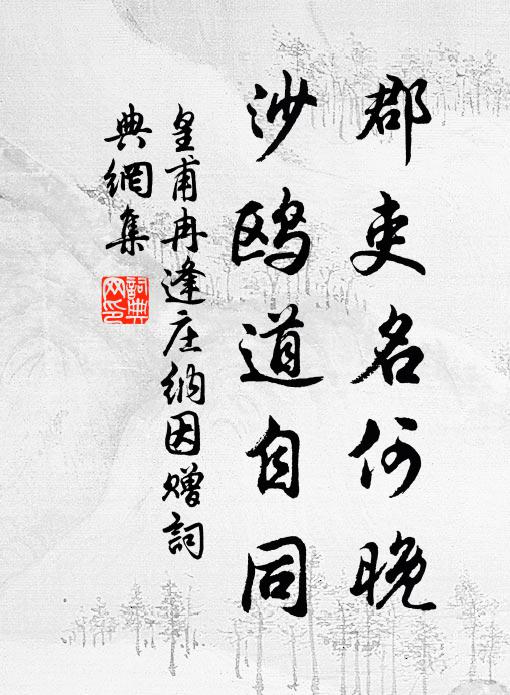 郡吏名何晚
沙鸥道自同
皇甫冉逢庄纳因赠词
典网集
词典网印